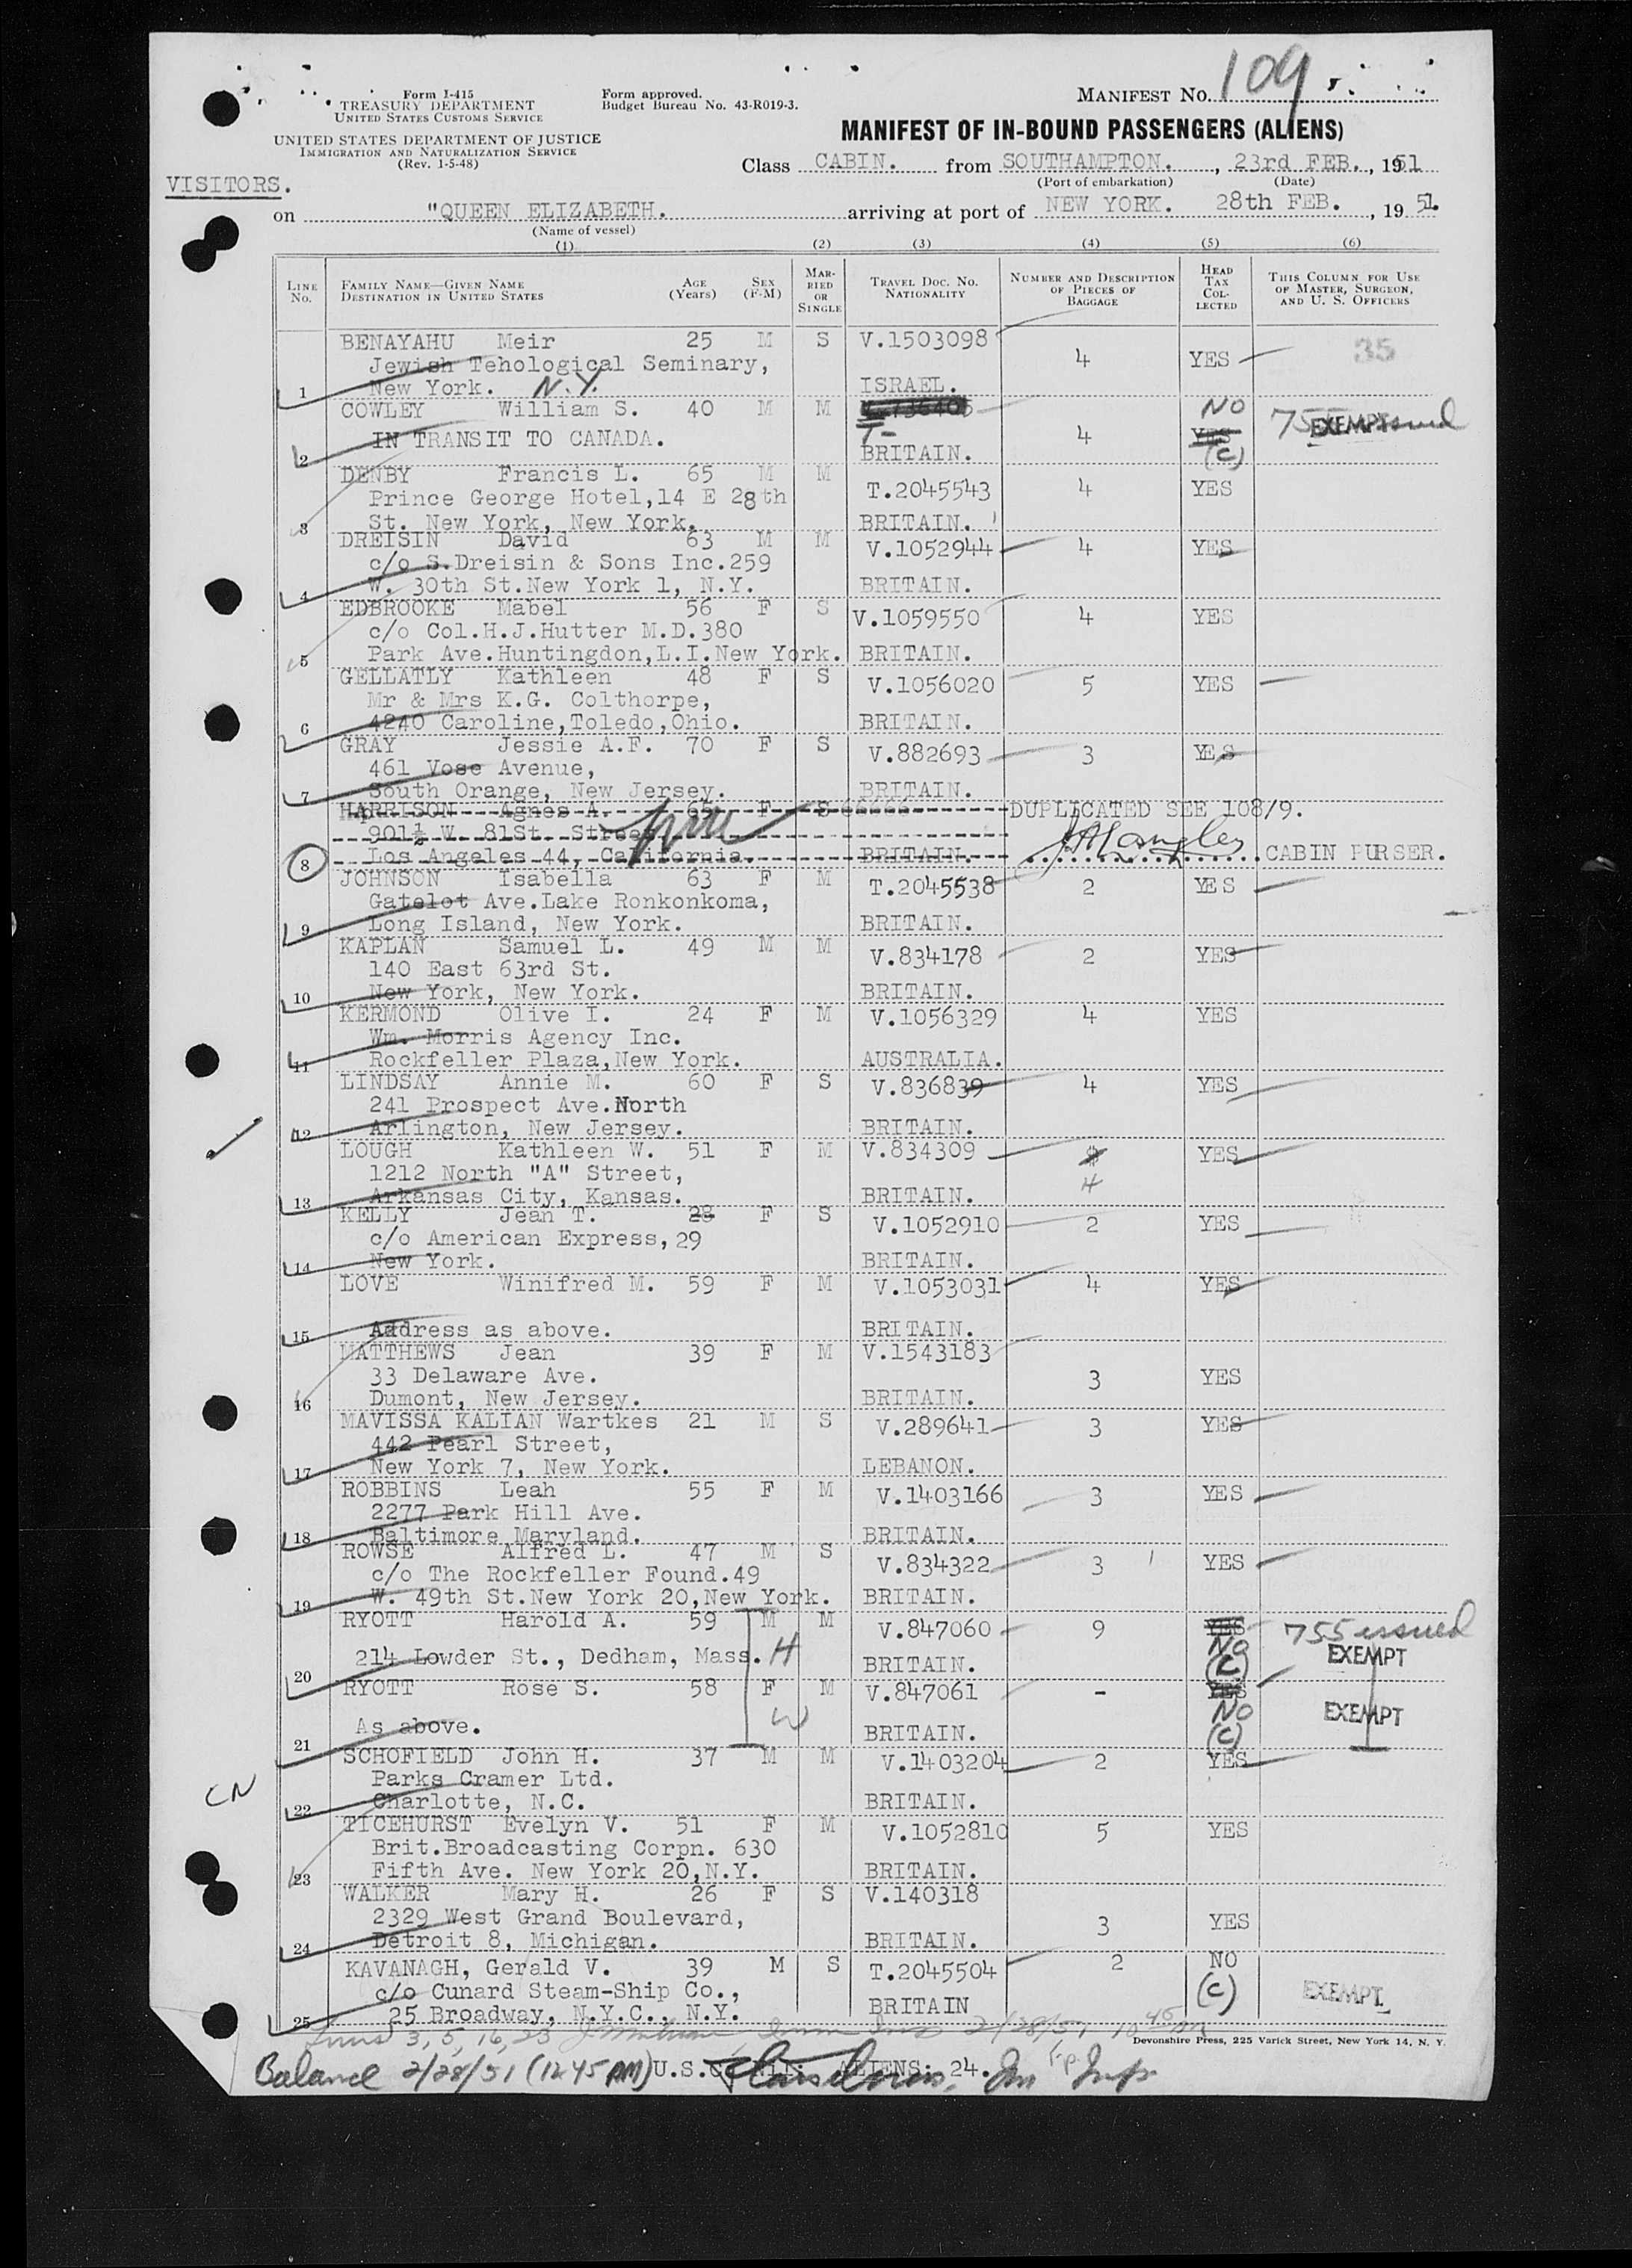 Form I-415
TREASURY DEPARTMENT
UNITED STATES CUSTOMS SERVICE
UNITED STATES DEPARTMENT OF JUSTICE
IMMIGRATION AND NATURALIZATION SERVICE
(Rev. 1-5-48)
Form approved.
Budget Bureau No. 43-R019-3.
MANIFEST NO. 109
MANIFEST OF IN-BOUND PASSENGERS (ALIENS)
Class CABIN. from SOUTHAMPTON., 23rd FEB., 1951
(Port of embarkation) (Date)
VISITORS.
on "QUEEN ELIZABETH. arriving at port of NEW YORK. 28th FEB., 19 51.
(Name of vessel)
(1) (2) (3) (4) (5) (6)
LINE NO. FAMILY NAME—GIVEN NAME DESTINATION IN UNITED STATES AGE (Years) SEX (F-M) MARRIED OR SINGLE TRAVEL DOC. NO. NATIONALITY NUMBER AND DESCRIPTION OF PIECES OF BAGGAGE HEAD TAX COLLECTED THIS COLUMN FOR USE OF MASTER, SURGEON, AND U. S. OFFICERS
BENAYAHU Meir 25 M S V.1503098
Jewish Tehological Seminary, 4 YES 35
1 New York. N.Y. ISRAEL.
COWLEY William S. 40 M M NO
IN TRANSIT TO CANADA. T- 4 YES 755 issued EXEMPT
2 BRITAIN. (C)
DENBY Francis L. 65 M M
Prince George Hotel,14 E 28th T.2045543 4 YES
3 St. New York, New York. BRITAIN.
DREISIN David 63 M M V.1052944 4 YES
c/o S.Dreisin & Sons Inc.259
4 W. 30th St.New York 1, N.Y. BRITAIN.
EDBROOKE Mabel 56 F S V.1059550 4 YES
c/o Col.H.J.Hutter M.D.380
5 Park Ave.Huntingdon,L.I.New York. BRITAIN.
GELLATLY Kathleen 48 F S V.1056020 5 YES
Mr & Mrs K.G. Colthorpe,
6 4240 Caroline,Toledo,Ohio. BRITAIN.
GRAY Jessie A.F. 70 F S V.882693 3 YES
461 Vose Avenue,
7 South Orange, New Jersey. BRITAIN.
HARRISON Agnes A. 65 F S DUPLICATED SEE 108/9.
901½ W. 81St. Street
8 Los Angeles 44, California. BRITAIN. CABIN PURSER.
JOHNSON Isabella 63 F M T.2045538 2 YES
Gatelot Ave.Lake Ronkonkoma,
9 Long Island, New York. BRITAIN.
KAPLAN Samuel L. 49 M M V.834178 2 YES
140 East 63rd St.
10 New York, New York. BRITAIN.
KERMOND Olive I. 24 F M V.1056329 4 YES
Wm. Morris Agency Inc.
11 Rockfeller Plaza,New York. AUSTRALIA.
LINDSAY Annie M. 60 F S V.836839 4 YES
241 Prospect Ave.North
12 Arlington, New Jersey. BRITAIN.
LOUGH Kathleen W. 51 F M V.834309 YES
1212 North "A" Street, 4
13 Arkansas City, Kansas. BRITAIN.
KELLY Jean T. 28 F S V.1052910 2 YES
c/o American Express, 29
14 New York. BRITAIN.
LOVE Winifred M. 59 F M V.1053031 4 YES
15 Address as above. BRITAIN.
MATTHEWS Jean 39 F M V.1543183
33 Delaware Ave. 3 YES
16 Dumont, New Jersey. BRITAIN.
MAVISSA KALIAN Wartkes 21 M S V.289641 3 YES
442 Pearl Street,
17 New York 7, New York. LEBANON.
ROBBINS Leah 55 F M V.1403166 3 YES
2277 Park Hill Ave.
18 Baltimore Maryland. BRITAIN.
ROWSE Alfred L. 47 M S V.834322 3 YES
c/o The Rockfeller Found.49
19 W. 49th St.New York 20,New York. BRITAIN.
RYOTT Harold A. 59 M M V.847060 9 YES 755 issued
214 Lowder St., Dedham, Mass. H NO EXEMPT
20 BRITAIN. (C)
RYOTT Rose S. 58 F M V.847061 - YES
As above. W NO EXEMPT
21 BRITAIN. (C)
SCHOFIELD John H. 37 M M V.1403204 2 YES
Parks Cramer Ltd.
CN
22 Charlotte, N.C. BRITAIN.
TICEHURST Evelyn V. 51 F M V.1052810 5 YES
Brit.Broadcasting Corpn. 630
23 Fifth Ave. New York 20,N.Y. BRITAIN.
WALKER Mary H. 26 F S V.140318
2329 West Grand Boulevard, 3 YES
24 Detroit 8, Michigan. BRITAIN.
KAVANAGH, Gerald V. 39 M S T.2045504 2 NO
c/o Cunard Steam-Ship Co., (C) EXEMPT
25 25 Broadway, N.Y.C., N.Y. BRITAIN
Lines 3, 5, 16, 23 2/28/51 10 45 AM
Devonshire Press, 225 Varick Street, New York 14, N. Y.
Balance 2/28/51 (12 45 PM) U.S.C. ALIENS: 24. Im Insp